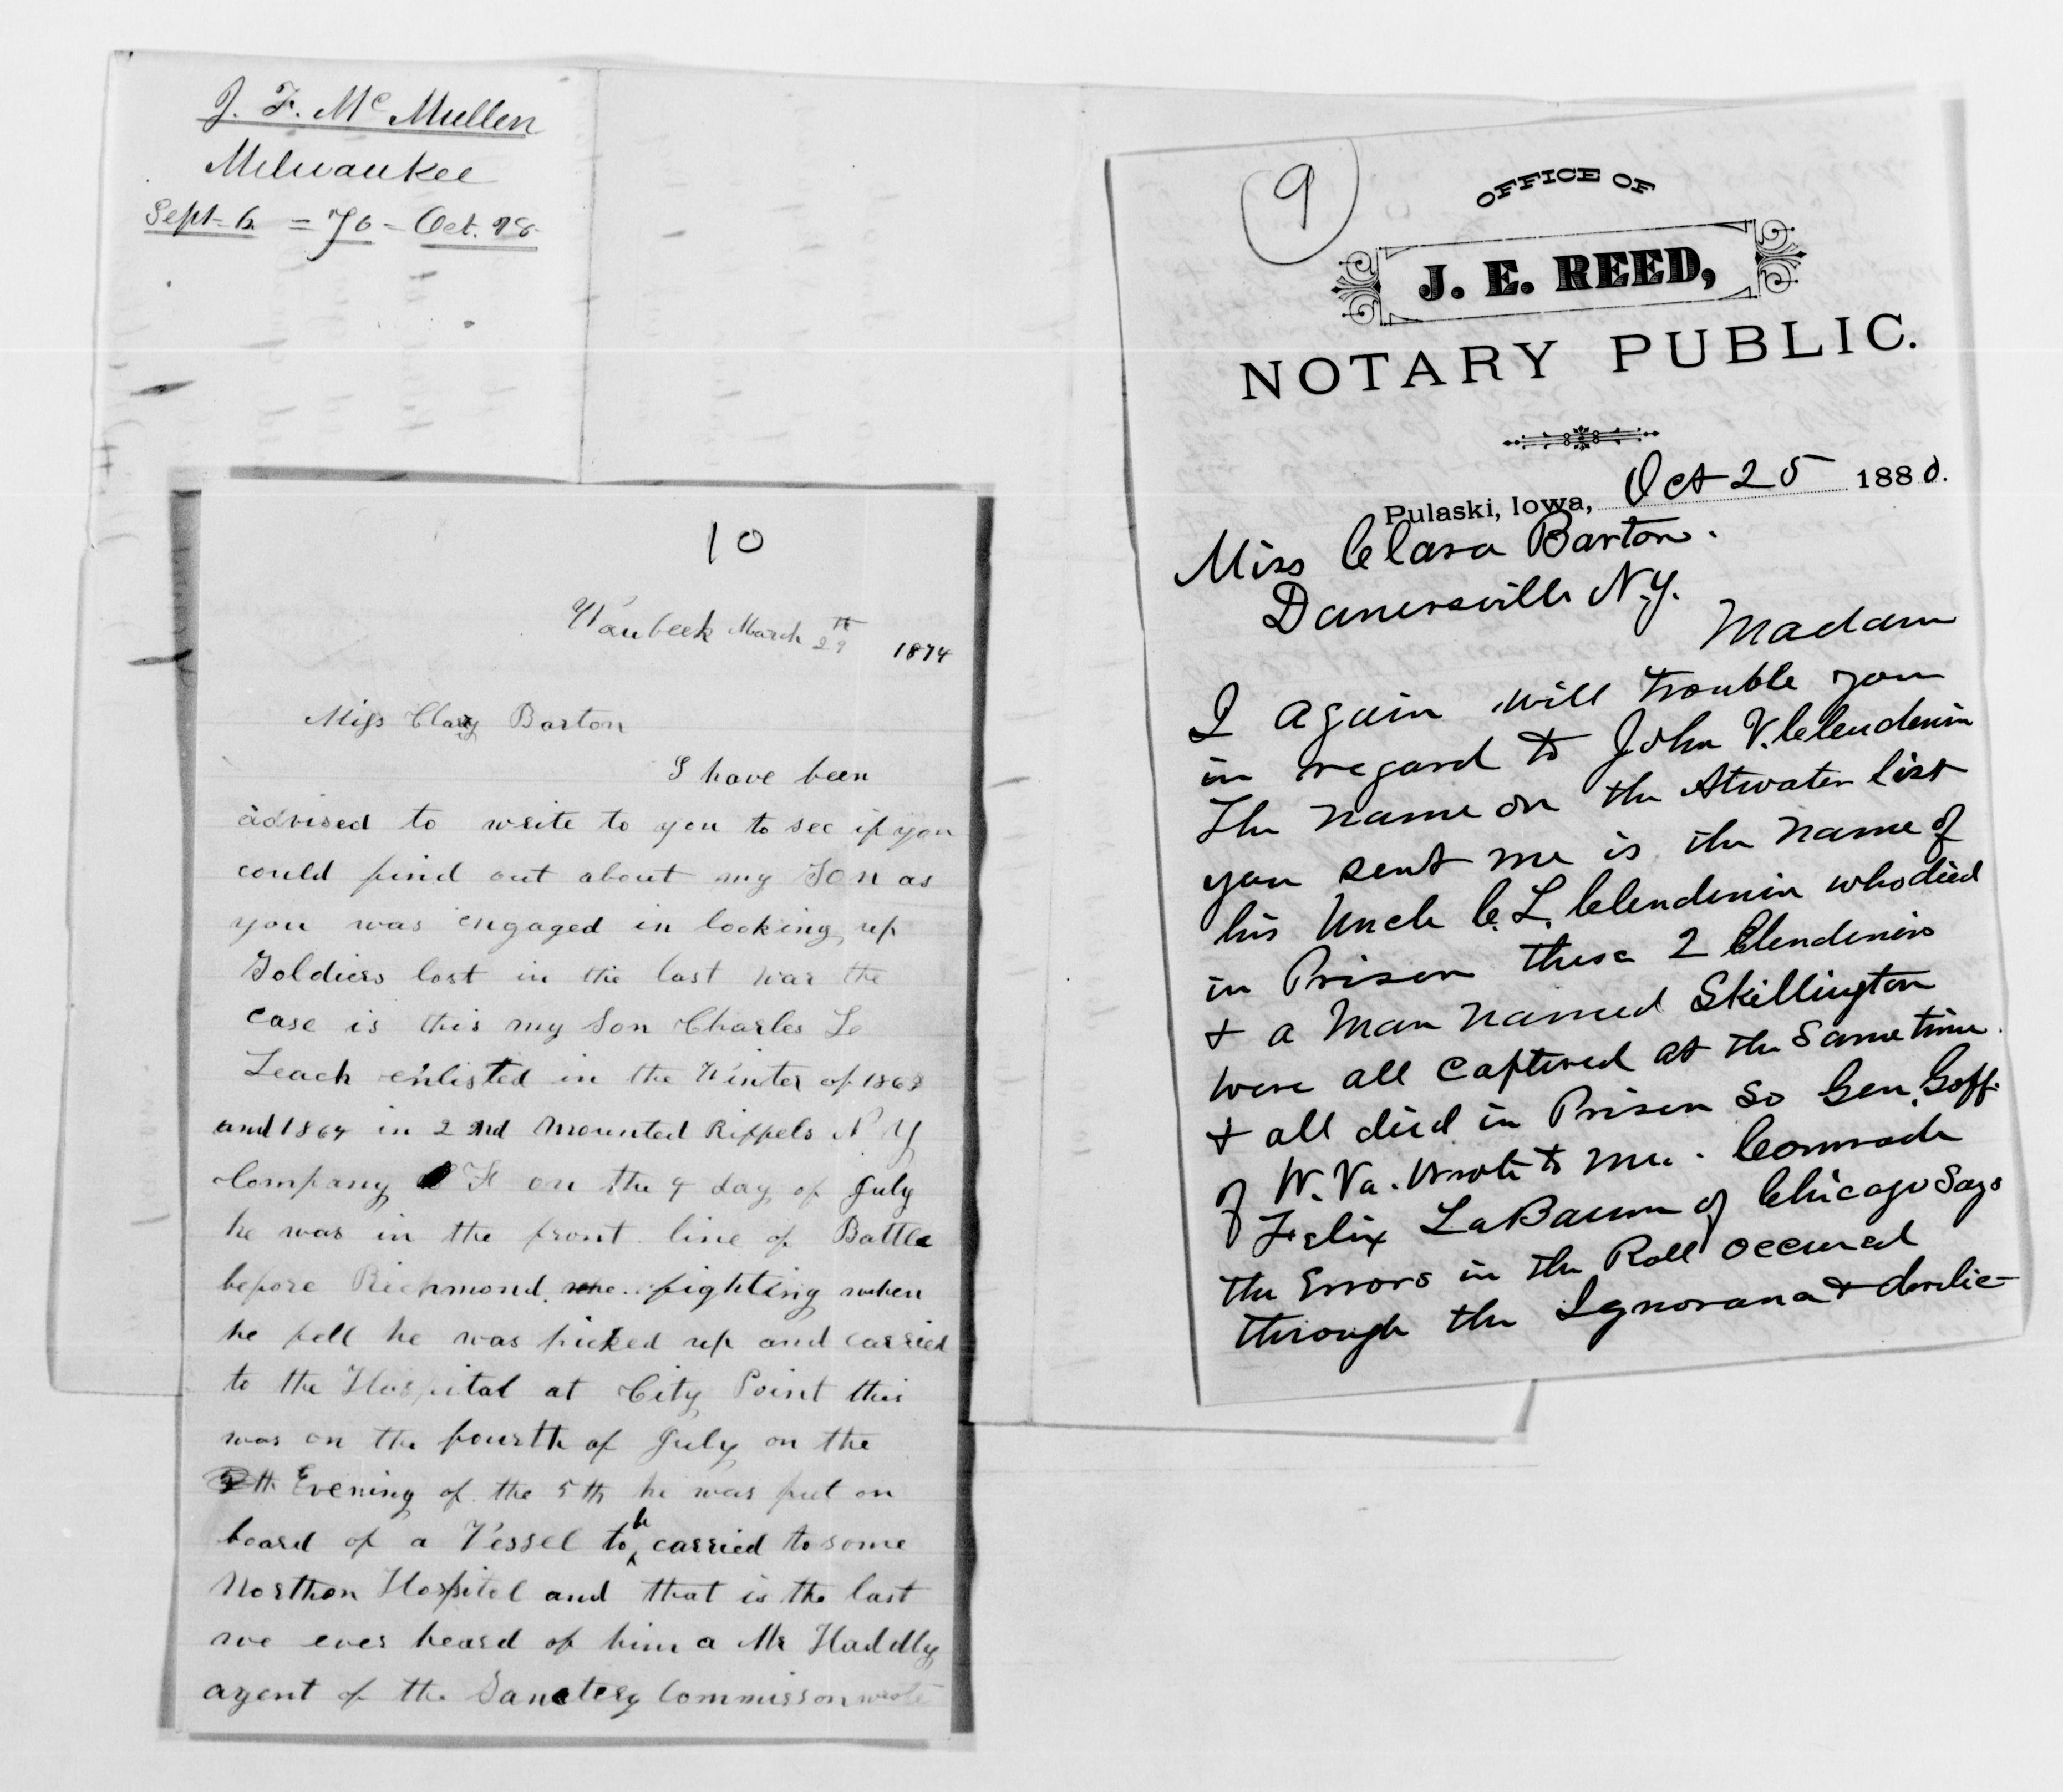 J. F. McMullen
Milwaukee
Sept. 6. = 76 - Oct. 78
10
Waubeek March 29th 1874
Miss Clary Barton
I have been
advised to write to you to see if you
could find out about my Son as
you was engaged in looking up
Soldiers lost in the last war the
case is this my Son Charles Le
Leach enlisted in the Winter of 1863
and 1864 in 2 2nd Mounted Riffels N Y
Company F on the 4 day of July
he was in the front line of Battle
before Richmond fighting when
he fell he was picked up and carried
to the Hospital at City Point this
was on the fourth of July on the
5th Evening of the 5th he was put on
board of a Vessel to be carried to some
Northon Hospitel and that is the last
we ever heard of him a Mr Haddly
agent of the Sanctery Commisson wrote
9
OFFICE OF
J. E. REED,
NOTARY PUBLIC.
Pulaski, Iowa, Oct 25 1880.
Miss Clara Barton.
Danersville N.Y.
Madam
I again will trouble you
in regard to John V. Clendenin
The name on the Atwater list
you sent me is the name of
his Uncle C. L. Clendenin who died
in Prison these 2 Clendenins
+ a Man named Skillington
were all captured at the same time
+ all died in Prison so Gen. Goff.
of W. Va. wrote to me. Comrade
Felix LaBaum of Chicago says
the Errors in the Roll occured
through the Ignorana +